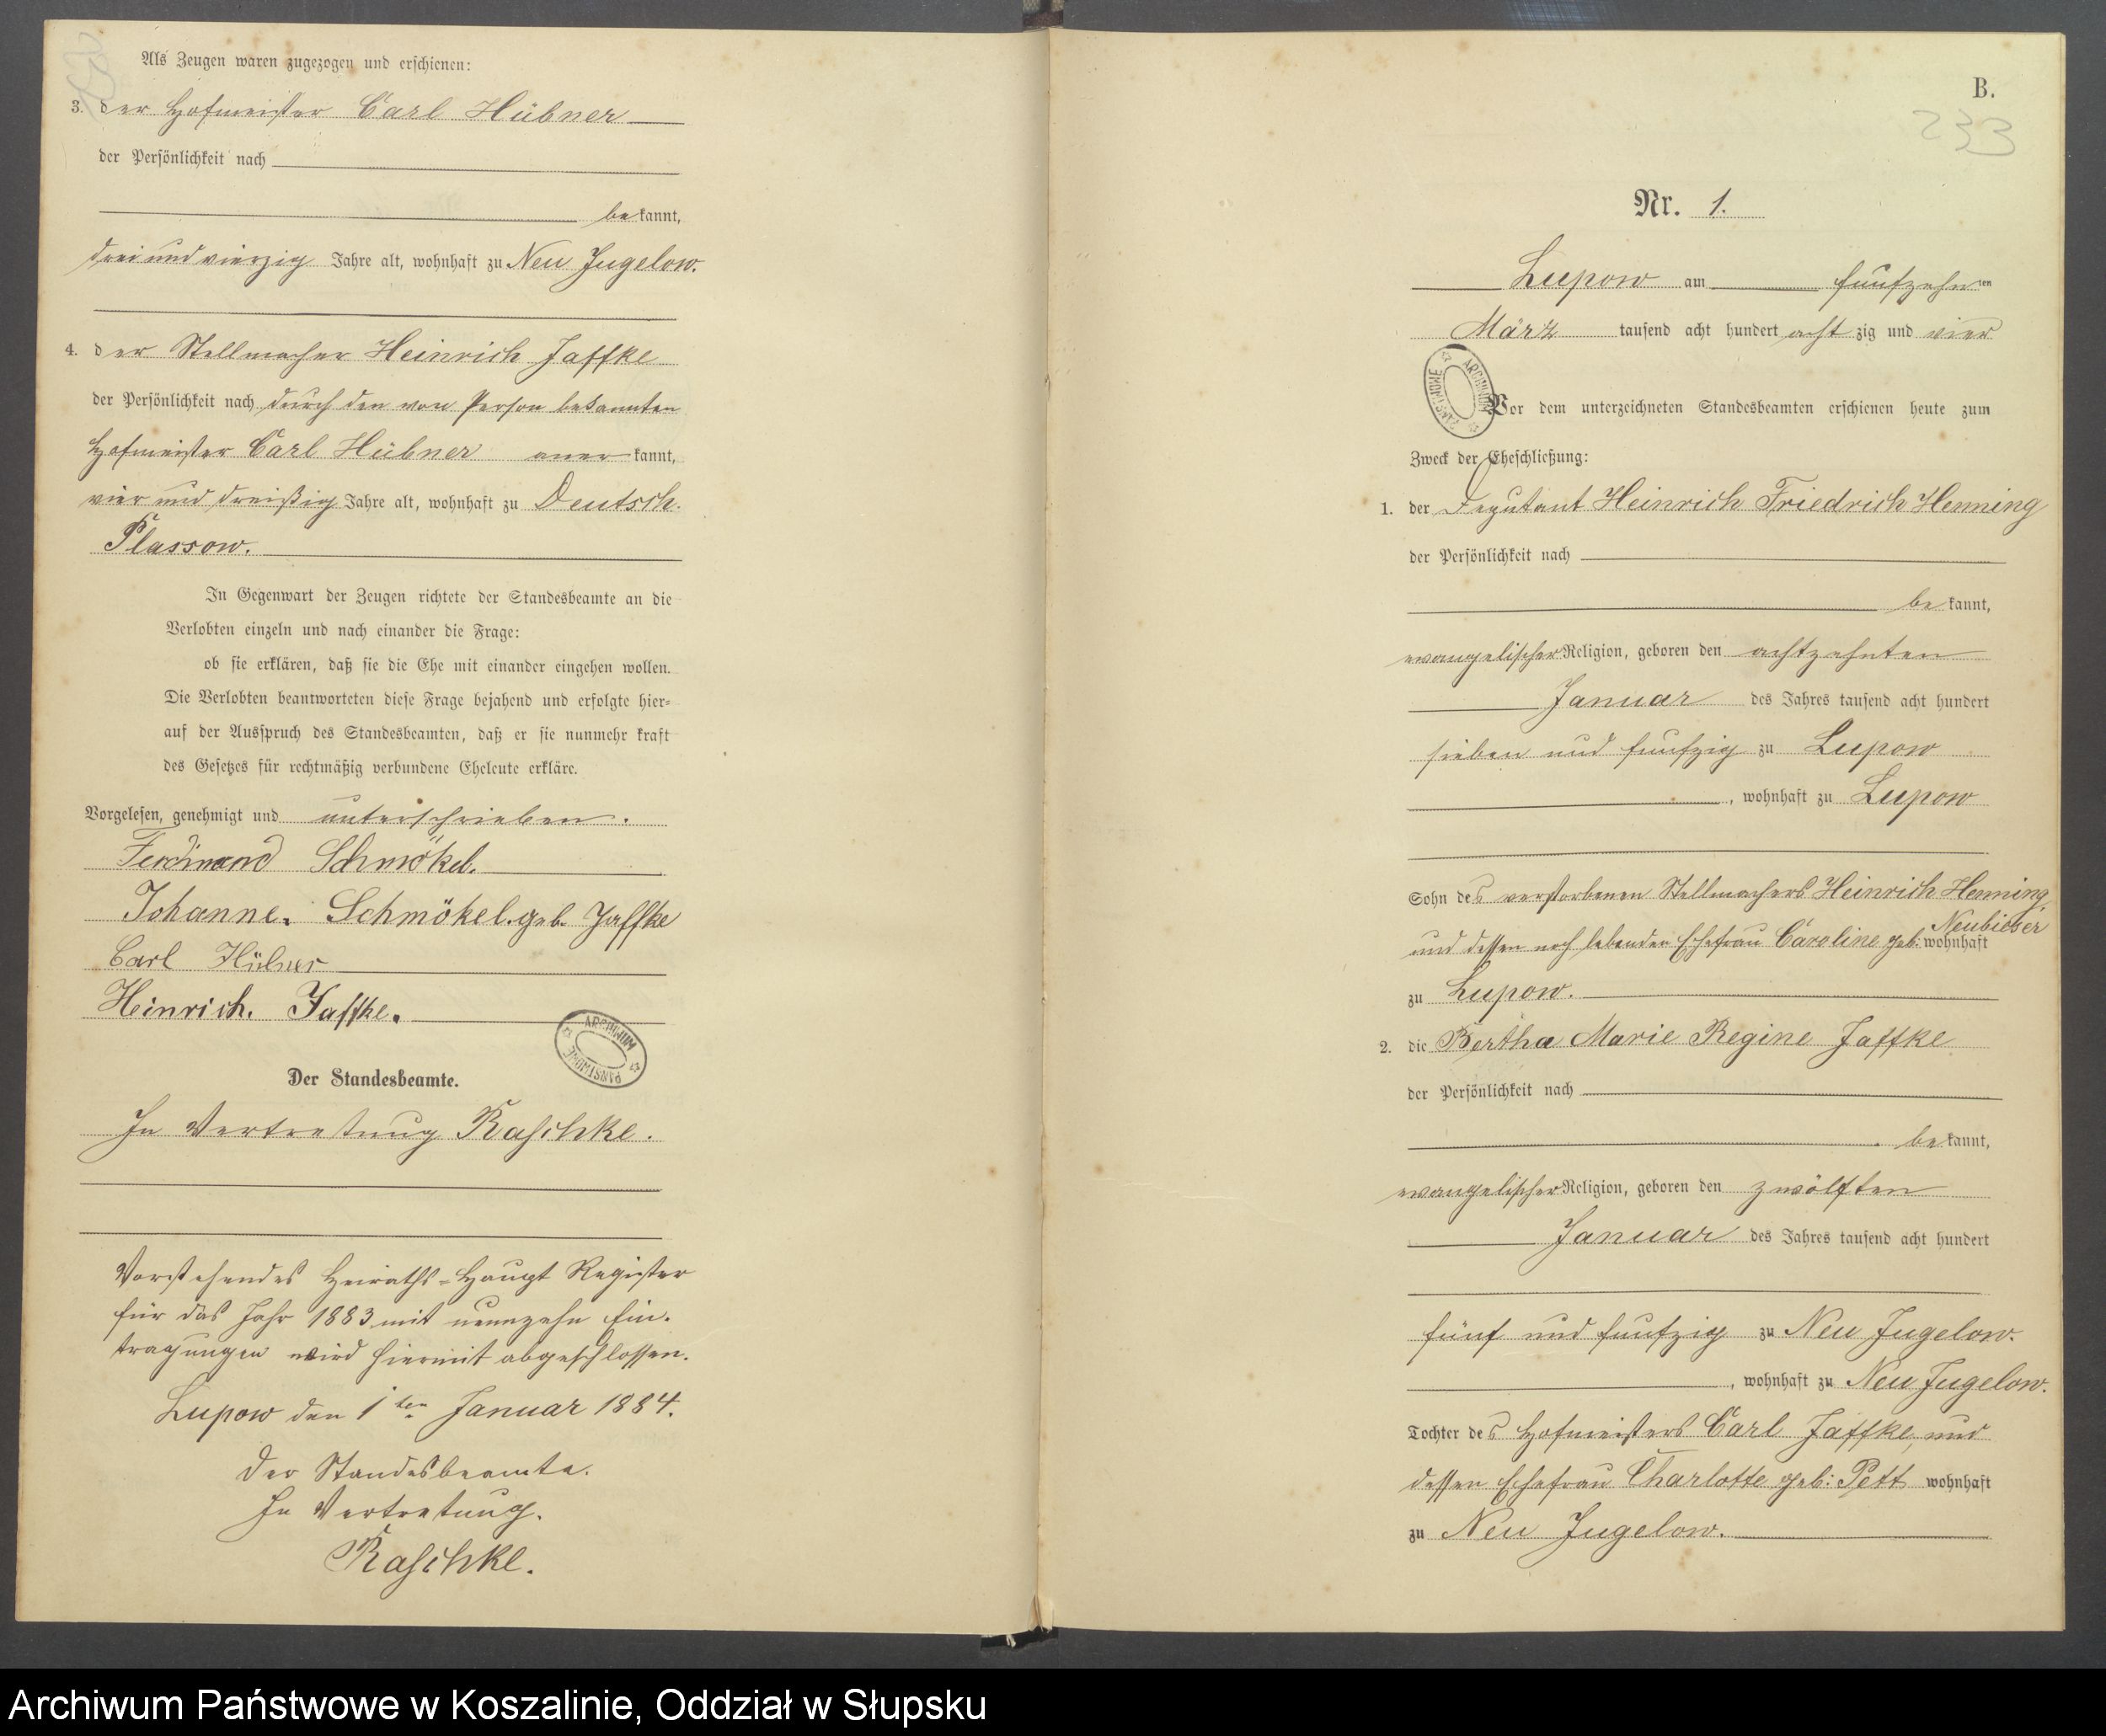 Als Zeugen waren zugezogen und erschienen:
3. der Hofmeister Carl Hübner
der Persönlichkeit nach
bekannt,
drei und vierzig Jahre alt, wohnhaft zu Neu Jugelow.
4. der Stellmacher Heinrich Jaffke
der Persönlichkeit nach durch den von Person bekannten
Hofmeister Carl Hübner anerkannt,
vier und dreißig Jahre alt, wohnhaft zu Deutsch
Plassow.
In Gegenwart der Zeugen richtete der Standesbeamte an die
Verlobten einzeln und nach einander die Frage:
ob sie erklären, daß sie die Ehe mit einander eingehen wollen.
Die Verlobten beantworteten diese Frage bejahend und erfolgte hier-
auf der Ausspruch des Standesbeamten, daß er sie nunmehr kraft
des Gesetzes für rechtmäßig verbundene Eheleute erkläre.
Vorgelesen, genehmigt und unterschrieben.
Ferdinand Schmökel.
Johanne. Schmökel. geb. Jaffke
Carl Hübner
Heinrich. Jaffke.
ARCHIWUM PAŃSTWOWE
Der Standesbeamte.
In Vertretung Raschke.
Vorstehendes Heiraths-Haupt Register
für das Jahr 1883 mit neunzehn Ein-
tragungen wird hiermit abgeschlossen.
Lupow den 1ten Januar 1884.
Der Standesbeamte.
In Vertretung.
Raschke.
B.
233
Nr. 1.
Lupow am funfzehnten
März tausend acht hundert achtzig und vier
ARCHIWUM PAŃSTWOWE
Vor dem unterzeichneten Standesbeamten erschienen heute zum
Zweck der Eheschließung:
1. der Deputant Heinrich Friedrich Henning
der Persönlichkeit nach
bekannt,
evangelischer Religion, geboren den achtzehnten
Januar des Jahres tausend acht hundert
sieben und funfzig zu Lupow
, wohnhaft zu Lupow
Sohn des verstorbenen Stellmachers Heinrich Henning,
und dessen noch lebenden Ehefrau Caroline geb: Neubieser wohnhaft
zu Lupow.
2. die Bertha Marie Regine Jaffke
der Persönlichkeit nach
bekannt,
evangelischer Religion, geboren den zwölften
Januar des Jahres tausend acht hundert
fünf und funfzig zu Neu Jugelow.
, wohnhaft zu Neu Jugelow.
Tochter des Hofmeisters Carl Jaffke, und
dessen Ehefrau Charlotte geb: Pett wohnhaft
zu Neu Jugelow.
Archiwum Państwowe w Koszalinie, Oddział w Słupsku